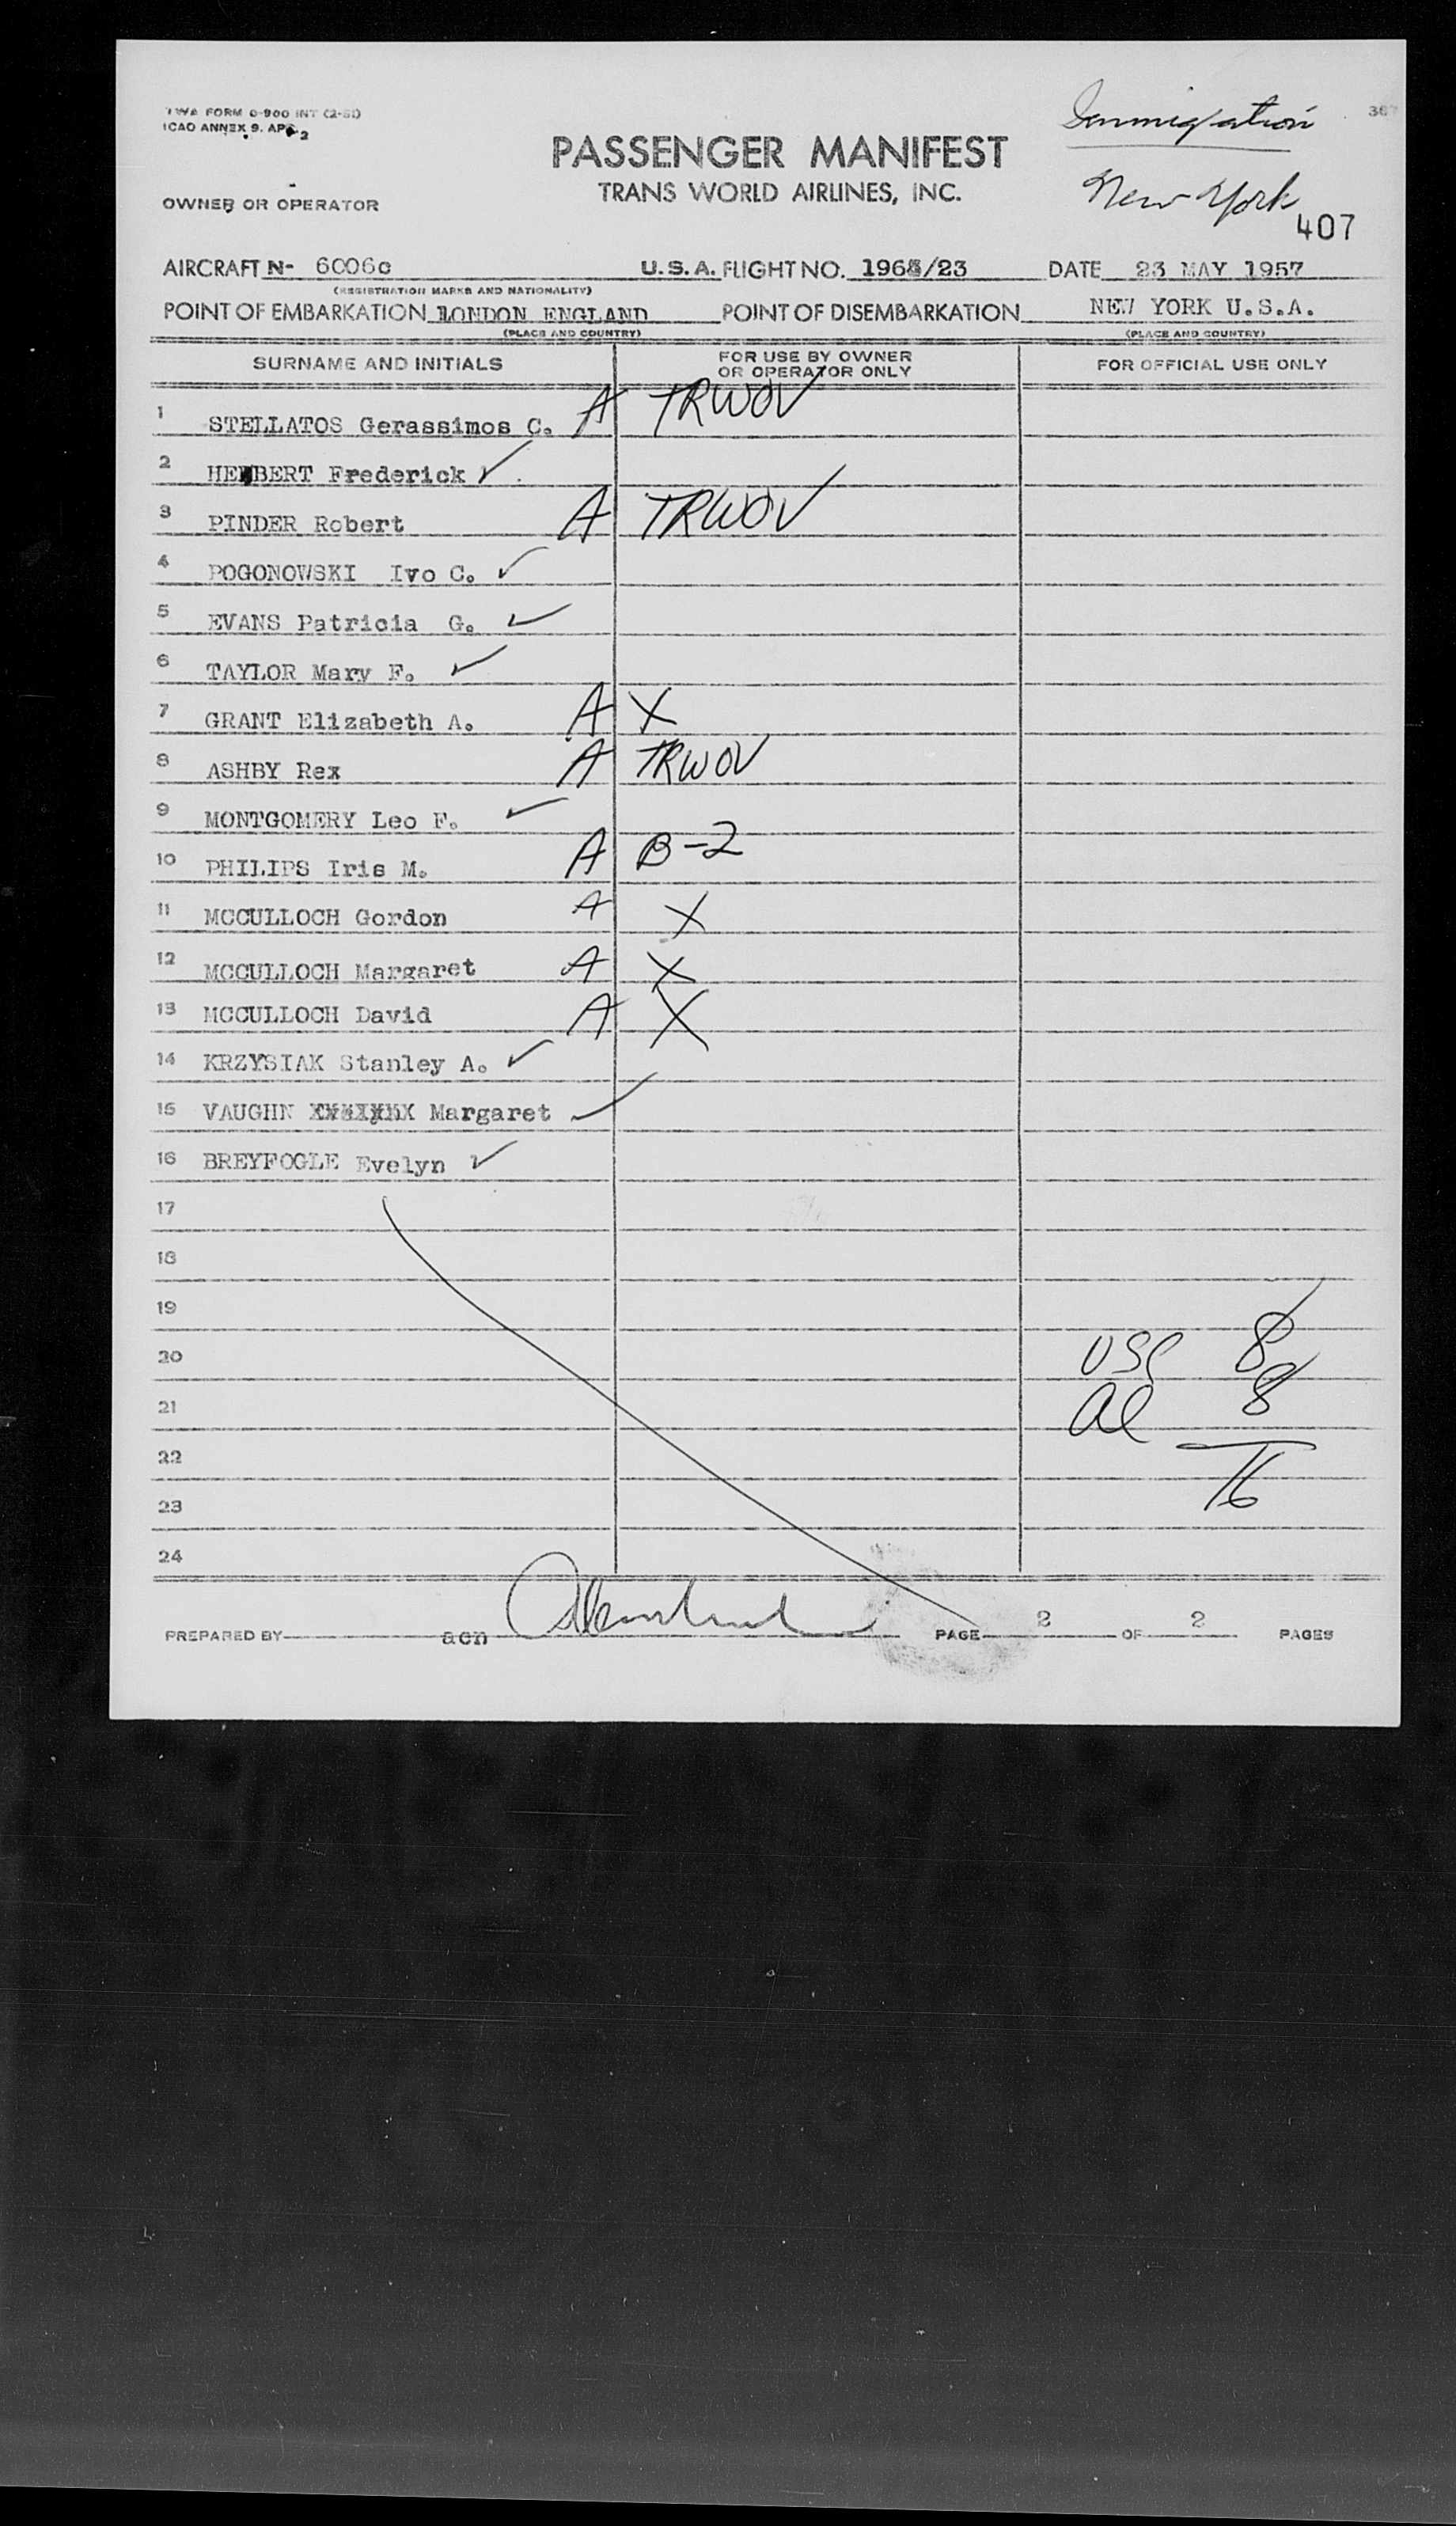 TWA FORM 0-900 INT (2-51)
ICAO ANNEX 9. APP. 2
Immigration
367
PASSENGER MANIFEST
TRANS WORLD AIRLINES, INC.
New York
OWNER OR OPERATOR
407
AIRCRAFT N- 6006c U.S.A. FLIGHT NO. /23 DATE 23 MAY 1957
(REGISTRATION MARKS AND NATIONALITY)
POINT OF EMBARKATION LONDON ENGLAND POINT OF DISEMBARKATION NEW YORK U.S.A.
(PLACE AND COUNTRY) (PLACE AND COUNTRY)
SURNAME AND INITIALS FOR USE BY OWNER OR OPERATOR ONLY FOR OFFICIAL USE ONLY
1 STELLATOS Gerassimos C. A TRWOV
2 Frederick ✓
3 PINDER Robert A TRWOV
4 POGONOWSKI Ivo C. ✓
5 EVANS Patricia G. ✓
6 TAYLOR Mary F. ✓
7 GRANT Elizabeth A. A X
8 ASHBY Rex A TRWOV
9 MONTGOMERY Leo F. ✓
10 PHILIPS Iris M. A B-2
11 MCCULLOCH Gordon A X
12 MCCULLOCH Margaret A X
13 MCCULLOCH David A X
14 KRZYSIAK Stanley A. ✓
15 VAUGHN Margaret ✓
16 BREYFOGLE Evelyn ✓
17
18
19
20 USC 8
21 Al 8
22
23 16
24
PREPARED BY acn PAGE 2 OF 2 PAGES